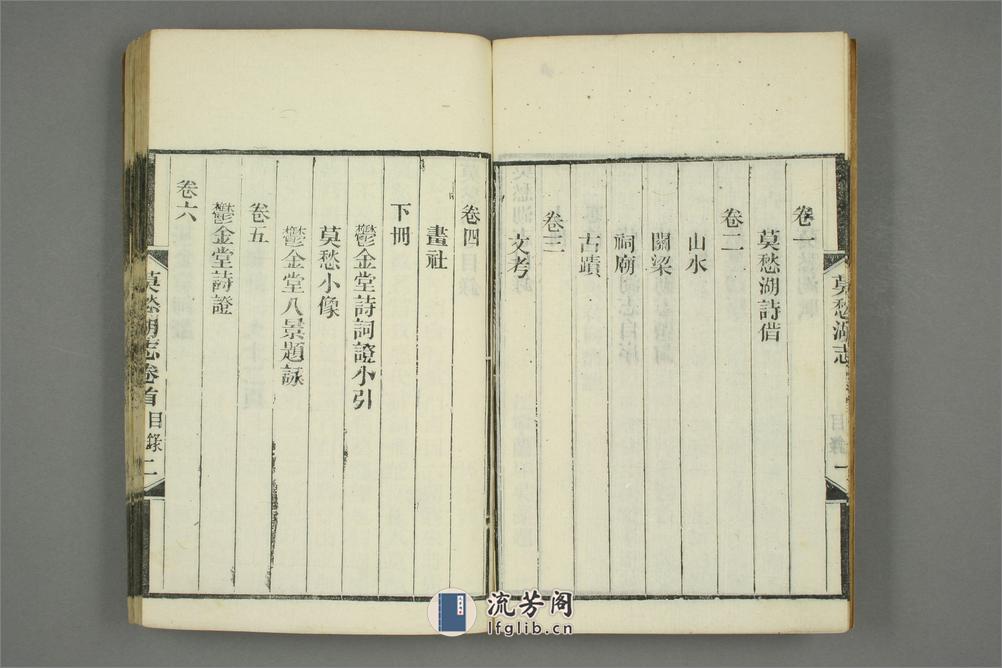 莫愁湖志
目錄
一
卷一
莫愁湖詩借
卷二
山水
關梁
祠廟
古蹟
卷三
文考
卷四
畫社
下冊
鬱金堂詩詞證小引
莫愁小像
鬱金堂八景題詠
卷五
鬱金堂詩證
卷六
莫愁湖志卷首
目錄
二
流芳阁
lfglib.cn